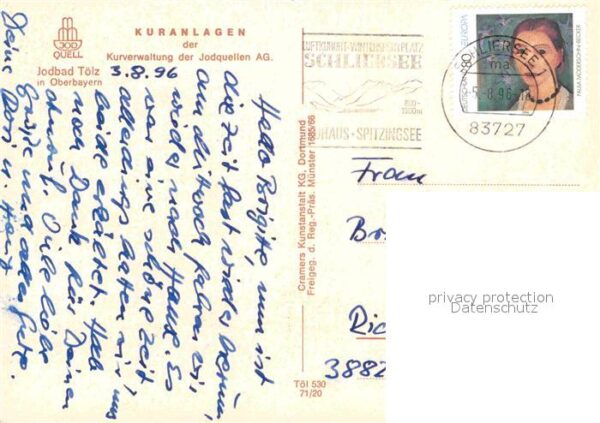 JOD
QUELL
KURANLAGEN
der
Kurverwaltung der Jodquellen AG.
Jodbad Tölz
in Oberbayern
3.8.96
Hallo Brigitte, nun ist
die Zeit fast wieder herum,
am Mittwoch fahren wir
wieder nach Hause. Es
war eine schöne Zeit,
allerdings hatten wir uns
beide erkältet. Hab
noch Dank für Deinen
Anruf. Dich liebe
Grüße und alles Gute.
Deine u.
Cramers Kunstanstalt KG, Dortmund
Freigeg. d. Reg.-Präs. Münster 1685/66
Töl 530
71/20
LUFTKURORT-WINTERSPORTPLATZ
SCHLIERSEE
800-
SPITZINGSEE
SCHLIERSEE
83727
EUROPA
DEUTSCHLAND
80
PAULA MODERSOHN-BECKER
Frau
Ric
3882
privacy protection
Datenschutz